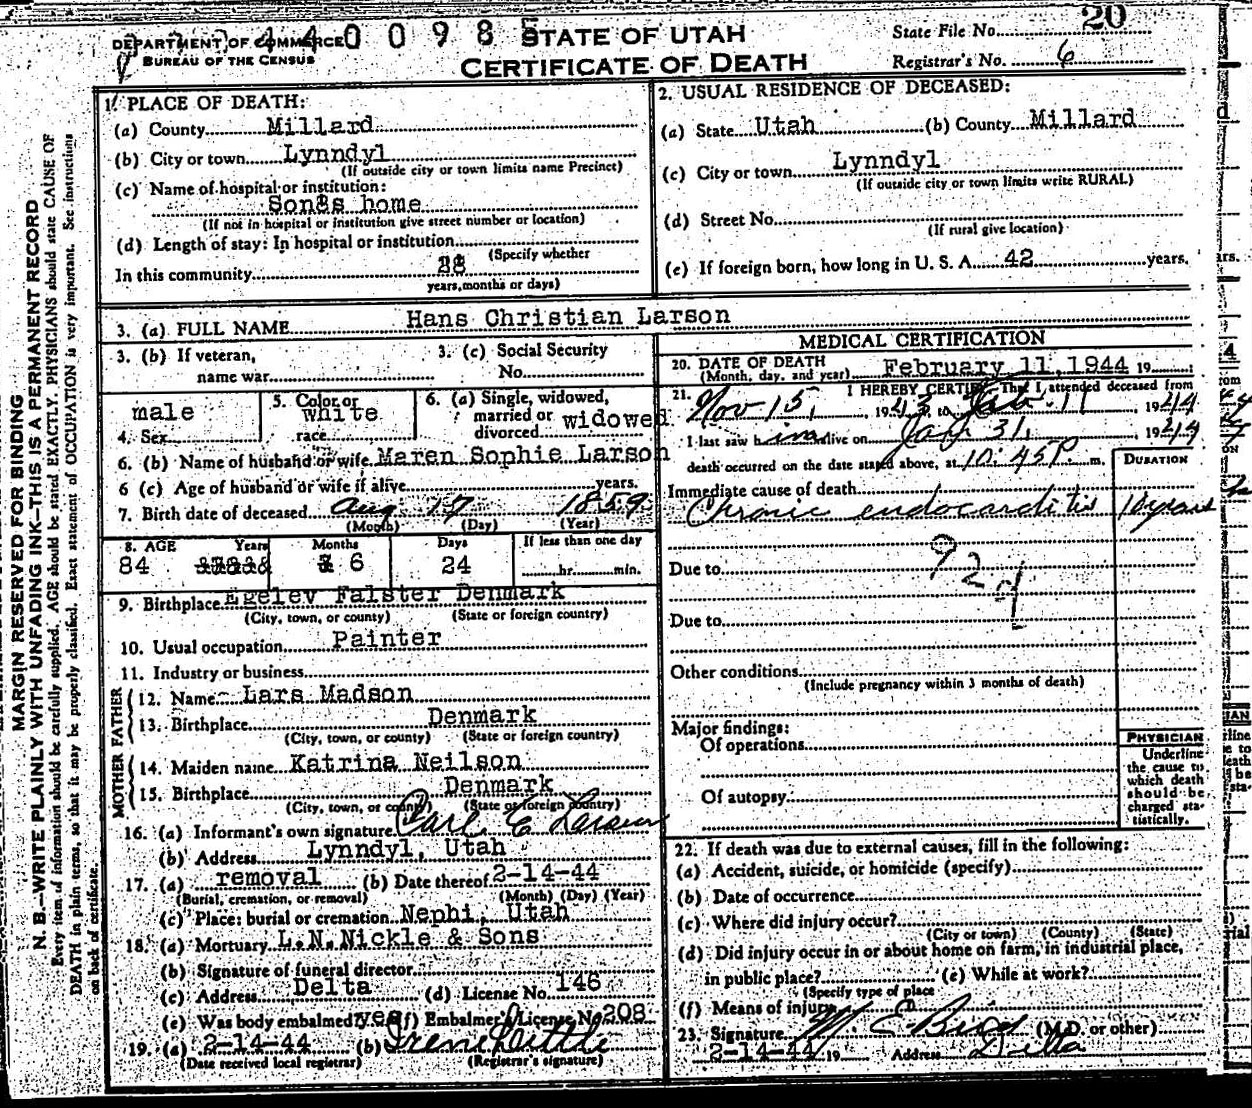 DEPARTMENT OF COMMERCE 440098
BUREAU OF THE CENSUS
STATE OF UTAH
CERTIFICATE OF DEATH
State File No. 20
Registrar's No. 6
MARGIN RESERVED FOR BINDING
N. B.—WRITE PLAINLY WITH UNFADING INK—THIS IS A PERMANENT RECORD
Every item of information should be carefully supplied. AGE should be stated EXACTLY. PHYSICIANS should state CAUSE OF
DEATH in plain terms, so that it may be properly classified. Exact statement of OCCUPATION is very important. See instructions
on back of certificate.
1. PLACE OF DEATH:
(a) County Millard
(b) City or town Lynndyl
(If outside city or town limits name Precinct)
(c) Name of hospital or institution:
Son&s home
(If not in hospital or institution give street number or location)
(d) Length of stay: In hospital or institution
(Specify whether
In this community 28
years, months or days)
2. USUAL RESIDENCE OF DECEASED:
(a) State Utah (b) County Millard
(c) City or town Lynndyl
(If outside city or town limits write RURAL)
(d) Street No.
(If rural give location)
(e) If foreign born, how long in U. S. A. 42 years.
3. (a) FULL NAME Hans Christian Larson
3. (b) If veteran, 3. (c) Social Security
name war No.
male 5. Color or white 6. (a) Single, widowed,
married or widowed
4. Sex race divorced
6. (b) Name of husband or wife Maren Sophie Larson
6 (c) Age of husband or wife if alive years.
7. Birth date of deceased Aug 17 1859
(Month) (Day) (Year)
8. AGE Years Months Days If less than one day
84 6 24 hr. min.
9. Birthplace Egelev Falster Denmark
(City, town, or county) (State or foreign country)
10. Usual occupation Painter
11. Industry or business
FATHER
12. Name Lars Madson
13. Birthplace Denmark
(City, town, or county) (State or foreign country)
MOTHER
14. Maiden name Katrina Neilson
15. Birthplace Denmark
(City, town, or county) (State or foreign country)
16. (a) Informant's own signature Carl E Larson
(b) Address Lynndyl, Utah
17. (a) removal (b) Date thereof 2-14-44
(Burial, cremation, or removal) (Month) (Day) (Year)
(c) Place: burial or cremation Nephi, Utah
18. (a) Mortuary L.N.Nickle & Sons
(b) Signature of funeral director
(c) Address Delta (d) License No. 146
(e) Was body embalmed? yes (f) Embalmer's License No. 208
19. (a) 2-14-44 (b) Irene Little
(Date received local registrar) (Registrar's signature)
MEDICAL CERTIFICATION
20. DATE OF DEATH February 11, 1944 19
(Month, day, and year)
21. I HEREBY CERTIFY, That I attended deceased from
Nov 15, 1943, to Feb. 11, 1944
I last saw him alive on Jan 31, 1944
death occurred on the date stated above, at 10:45P. m. DURATION
Immediate cause of death
Chronic endocarditis 10 years
92d
Due to
Due to
Other conditions
(Include pregnancy within 3 months of death)
Major findings:
Of operations
Of autopsy
PHYSICIAN
Underline
the cause to
which death
should be
charged sta-
tistically.
22. If death was due to external causes, fill in the following:
(a) Accident, suicide, or homicide (specify)
(b) Date of occurrence
(c) Where did injury occur?
(City or town) (County) (State)
(d) Did injury occur in or about home on farm, in industrial place,
in public place? (e) While at work?
(Specify type of place
(f) Means of injury
23. Signature M E Bird (M.D. or other)
2-14-44 19 Address Delta